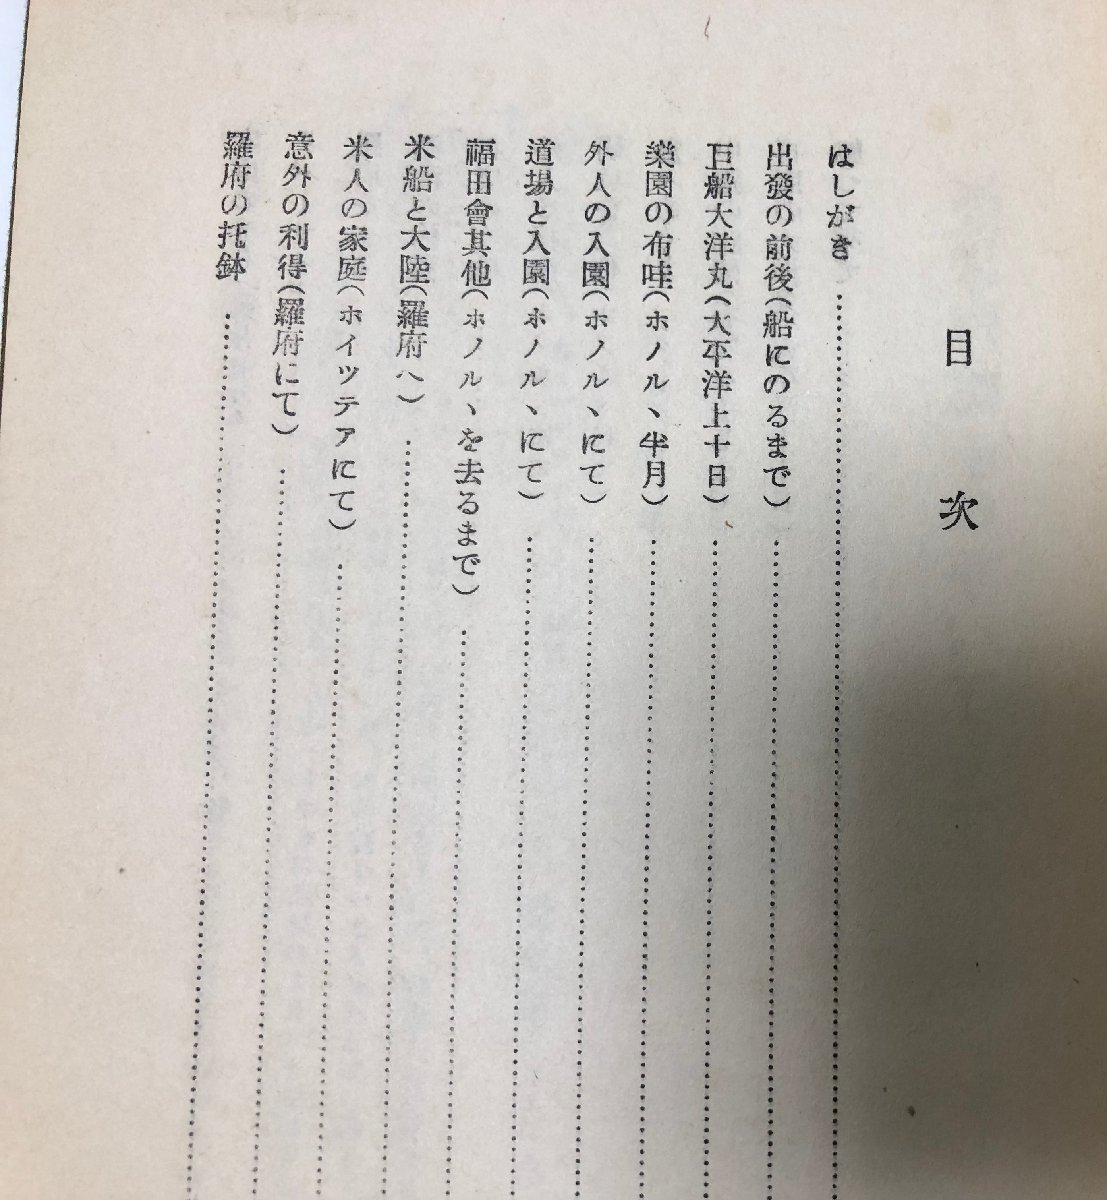 目次
はしがき
出發の前後(船にのるまで)
巨船大洋丸(太平洋上十日)
樂園の布哇(ホノルヽ半月)
外人の入園(ホノルヽにて)
道場と入園(ホノルヽにて)
福田會其他(ホノルヽを去るまで)
米船と大陸(羅府へ)
米人の家庭(ホイッテアにて)
意外の利得(羅府にて)
羅府の托鉢